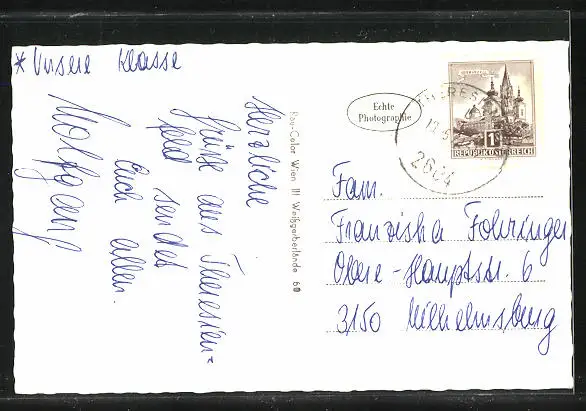 * Unsere Klasse
Herzliche
Grüße aus Theresien=
feld sendet
Euch allen
Wolfgang
Ray-Color Wien III Weißgerberlände 60
Echte
Photographie
THERES
2604
1S
REPUBLIK ÖSTERREICH
Fam.
Franziska Fohringer
Obere-Hauptstr. 6
3150 Wilhelmsburg